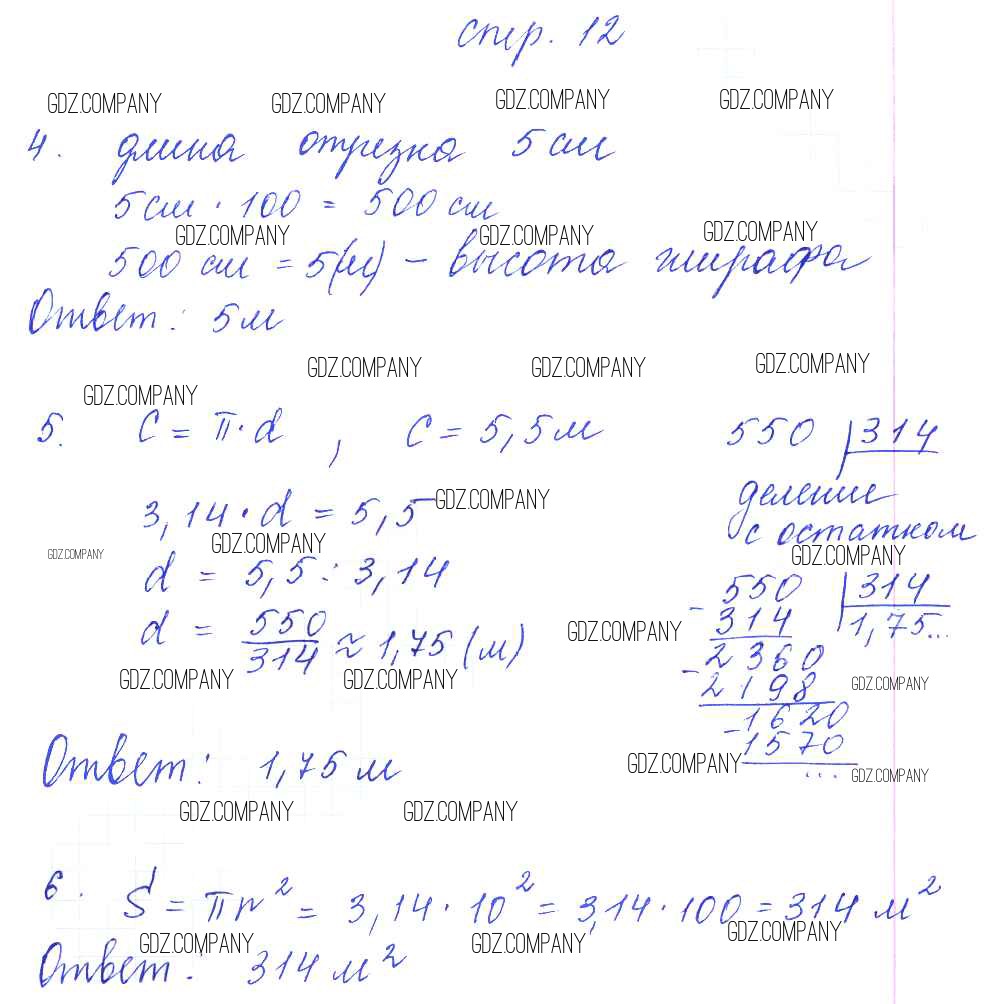 стр. 12
GDZ.COMPANY GDZ.COMPANY GDZ.COMPANY GDZ.COMPANY
4. длина отрезка 5 см
5 см · 100 = 500 см
GDZ.COMPANY GDZ.COMPANY GDZ.COMPANY
500 см = 5(м) – высота жирафа
Ответ: 5 м
GDZ.COMPANY GDZ.COMPANY GDZ.COMPANY
GDZ.COMPANY
5. C = π·d , C = 5,5 м
550 314
деление
с остатком
3,14·d = 5,5
GDZ.COMPANY
GDZ.COMPANY GDZ.COMPANY GDZ.COMPANY
d = 5,5 : 3,14
d = 550/314 ≈ 1,75 (м)
GDZ.COMPANY
GDZ.COMPANY GDZ.COMPANY GDZ.COMPANY
- 550 314
314 1,75...
- 2360
2198
- 1620
1570
...
Ответ: 1,75 м
GDZ.COMPANY GDZ.COMPANY
GDZ.COMPANY GDZ.COMPANY
6. S = πr² = 3,14 · 10² = 3,14 · 100 = 314 м²
GDZ.COMPANY GDZ.COMPANY GDZ.COMPANY
Ответ: 314 м²